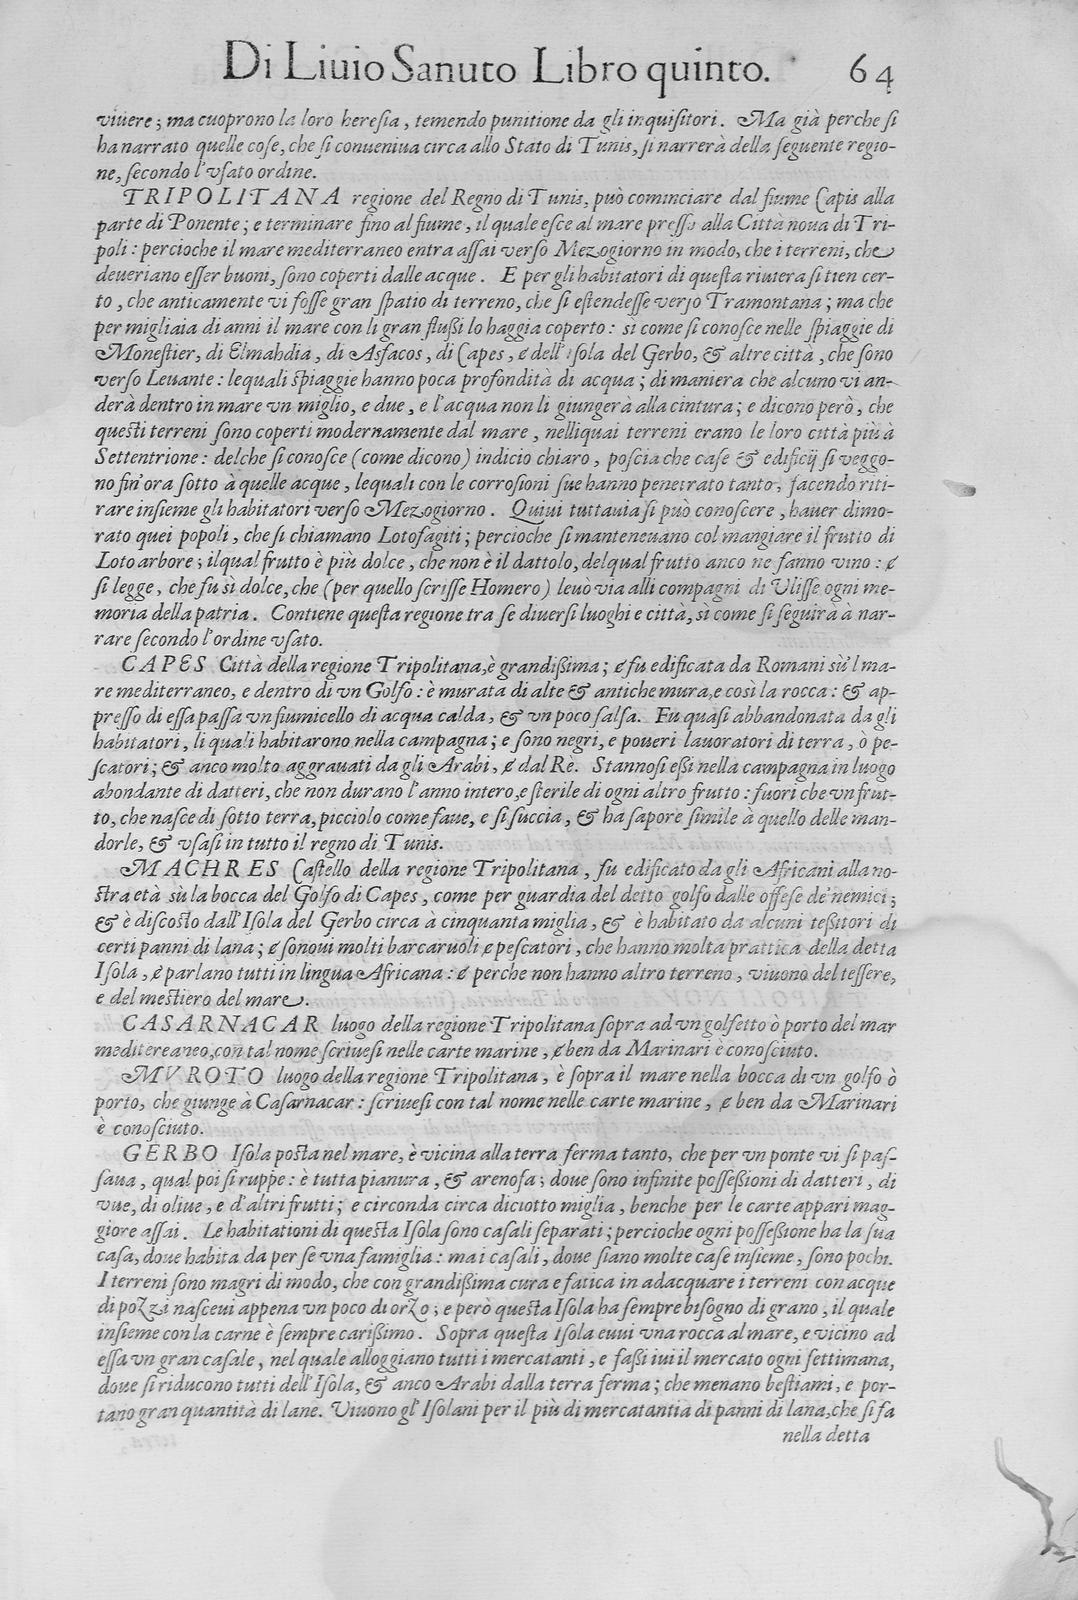 Di Liuio Sanuto Libro quinto. 64
viuere; ma cuoprono la loro heresia, temendo punitione da gli inquisitori. Ma già perche si
ha narrato quelle cose, che si conueniua circa allo Stato di Tunis, si narrerà della seguente regio-
ne, secondo l'vsato ordine.
TRIPOLITANA regione del Regno di Tunis, può cominciare dal fiume Capis alla
parte di Ponente; e terminare fino al fiume, il quale esce al mare presso alla Città noua di Tri-
poli: percioche il mare mediterraneo entra assai verso Mezogiorno in modo, che i terreni, che
deueriano esser buoni, sono coperti dalle acque. E per gli habitatori di questa riuiera si tien cer-
to, che anticamente vi fosse gran spatio di terreno, che si estendesse verso Tramontana; ma che
per migliaia di anni il mare con li gran flussi lo haggia coperto: sì come si conosce nelle spiaggie di
Monestier, di Elmahdia, di Asfacos, di Capes, e dell'isola del Gerbo, & altre città, che sono
verso Leuante: lequali spiaggie hanno poca profondità di acqua; di maniera che alcuno vi an-
derà dentro in mare vn miglio, e due, e l'acqua non li giungerà alla cintura; e dicono però, che
questi terreni sono coperti modernamente dal mare, nelli quai terreni erano le loro città più à
Settentrione: delche si conosce (come dicono) indicio chiaro, poscia che case & edificij si veggo-
no fin'ora sotto à quelle acque, lequali con le corrosioni sue hanno penetrato tanto, facendo riti-
rare insieme gli habitatori verso Mezogiorno. Quiui tuttauia si può conoscere, hauer dimo-
rato quei popoli, che si chiamano Lotofagiti; percioche si manteneuano col mangiare il frutto di
Loto arbore; ilqual frutto è più dolce, che non è il dattolo, del qual frutto anco ne fanno vino: e
si legge, che fu sì dolce, che (per quello scrisse Homero) leuò via alli compagni di Vlisse ogni me-
moria della patria. Contiene questa regione tra se diuersi luoghi e città, sì come si seguirà à nar-
rare secondo l'ordine vsato.
CAPES Città della regione Tripolitana, è grandissima; e fu edificata da Romani sù'l ma-
re mediterraneo, e dentro di vn Golfo: è murata di alte & antiche mura, e così la rocca: & ap-
presso di essa passa vn fiumicello di acqua calda, & vn poco salsa. Fu quasi abbandonata da gli
habitatori, li quali habitarono nella campagna; e sono negri, e poueri lauoratori di terra, ò pe-
scatori; & anco molto aggrauati da gli Arabi, e dal Rè. Stannosi essi nella campagna in luogo
abondante di datteri, che non durano l'anno intero, e sterile di ogni altro frutto: fuori che vn frut-
to, che nasce di sotto terra, picciolo come faue, e si succia, & ha sapore simile à quello delle man-
dorle, & vsasi in tutto il regno di Tunis.
MACHRES Castello della regione Tripolitana, fu edificato da gli Africani alla no-
stra età sù la bocca del Golfo di Capes, come per guardia del detto golfo dalle offese de' nemici;
& è discosto dall'Isola del Gerbo circa à cinquanta miglia, & è habitato da alcuni tessitori di
certi panni di lana; e sonoui molti barcaruoli e pescatori, che hanno molta prattica della detta
Isola, e parlano tutti in lingua Africana: e perche non hanno altro terreno, viuono del tessere,
e del mestiero del mare.
CASARNACAR luogo della regione Tripolitana sopra ad vn golfetto ò porto del mar
meditereaneo, con tal nome scriuesi nelle carte marine, e ben da Marinari è conosciuto.
MVROTO luogo della regione Tripolitana, è sopra il mare nella bocca di vn golfo ò
porto, che giunge à Casarnacar: scriuesi con tal nome nelle carte marine, e ben da Marinari
è conosciuto.
GERBO Isola posta nel mare, è vicina alla terra ferma tanto, che per vn ponte vi si pas-
saua, qual poi si ruppe: è tutta pianura, & arenosa; doue sono infinite possessioni di datteri, di
vue, di oliue, e d'altri frutti; e circonda circa diciotto miglia, benche per le carte appari mag-
giore assai. Le habitationi di questa Isola sono casali separati; percioche ogni possessione ha la sua
casa, doue habita da per se vna famiglia: ma i casali, doue siano molte case insieme, sono pochi.
I terreni sono magri di modo, che con grandissima cura e fatica in adacquare i terreni con acque
di pozzi nasceui appena vn poco di orzo; e però questa Isola ha sempre bisogno di grano, il quale
insieme con la carne è sempre carissimo. Sopra questa Isola euui vna rocca al mare, e vicino ad
essa vn gran casale, nel quale alloggiano tutti i mercatanti, e fassi iui il mercato ogni settimana,
doue si riducono tutti dell'Isola, & anco Arabi dalla terra ferma; che menano bestiami, e por-
tano gran quantità di lane. Viuono gl'Isolani per il più di mercatantia di panni di lana, che si fa
nella detta